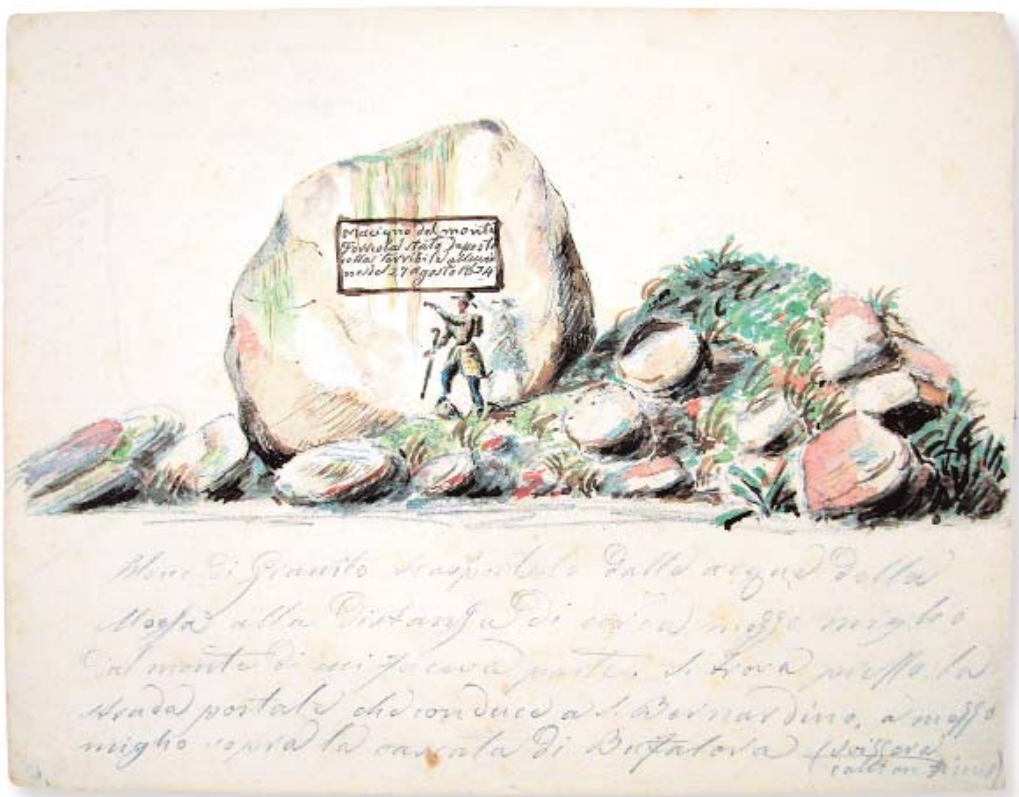 Macigno del monte
Forcola stato deposto
nella terribile alluvio
ne del 27 agosto 1834
di Granito trasportato dalle acque della
Moesa alla distanza di circa mezzo miglio
dal monte di cui faceva parte. Si trova presso la
strada postale che conduce a S. Bernardino, a mezzo
miglio sopra la cascata di Buffalora (Svizzera